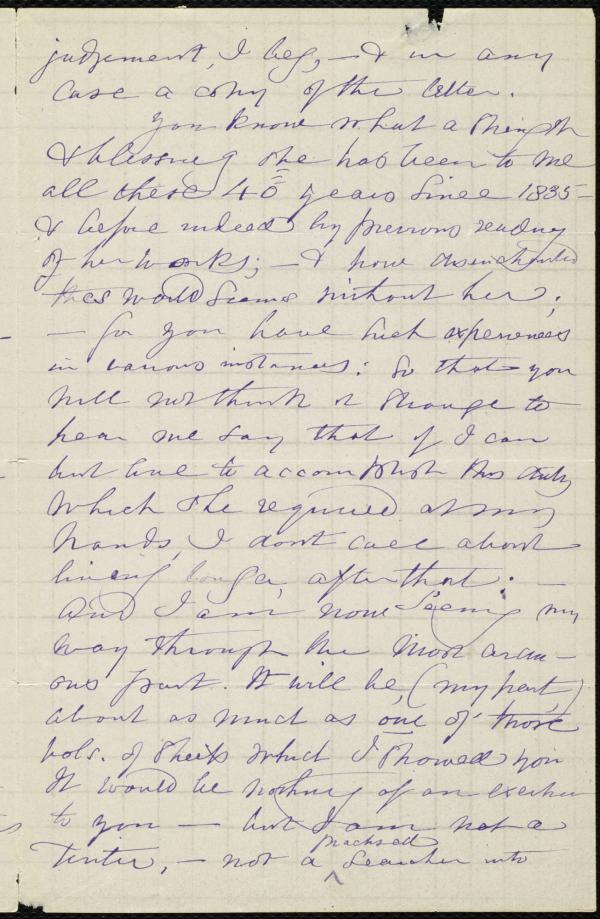 judgement, I beg, — & in any
case a copy of the letter.
You know what a strength
& blessing she has been to me
all these 40 years since 1835 —
& before indeed by previous reading
of her works; — & how disenchanted
this world seems without her.
— for you have such experiences
in various instances: So that you
will not think it strange to
hear me say that if I can
but live to accomplish this duty
which she required at my
hands, I don't care about
living longer after that. —
And I am now seeing my
way through the most ardu-
ous part. It will be, (my part,)
about as much as one of those
vols. of sheets which I showed you
It would be nothing of an exertion
to you — but I am not a
writer, — not a practised searcher into